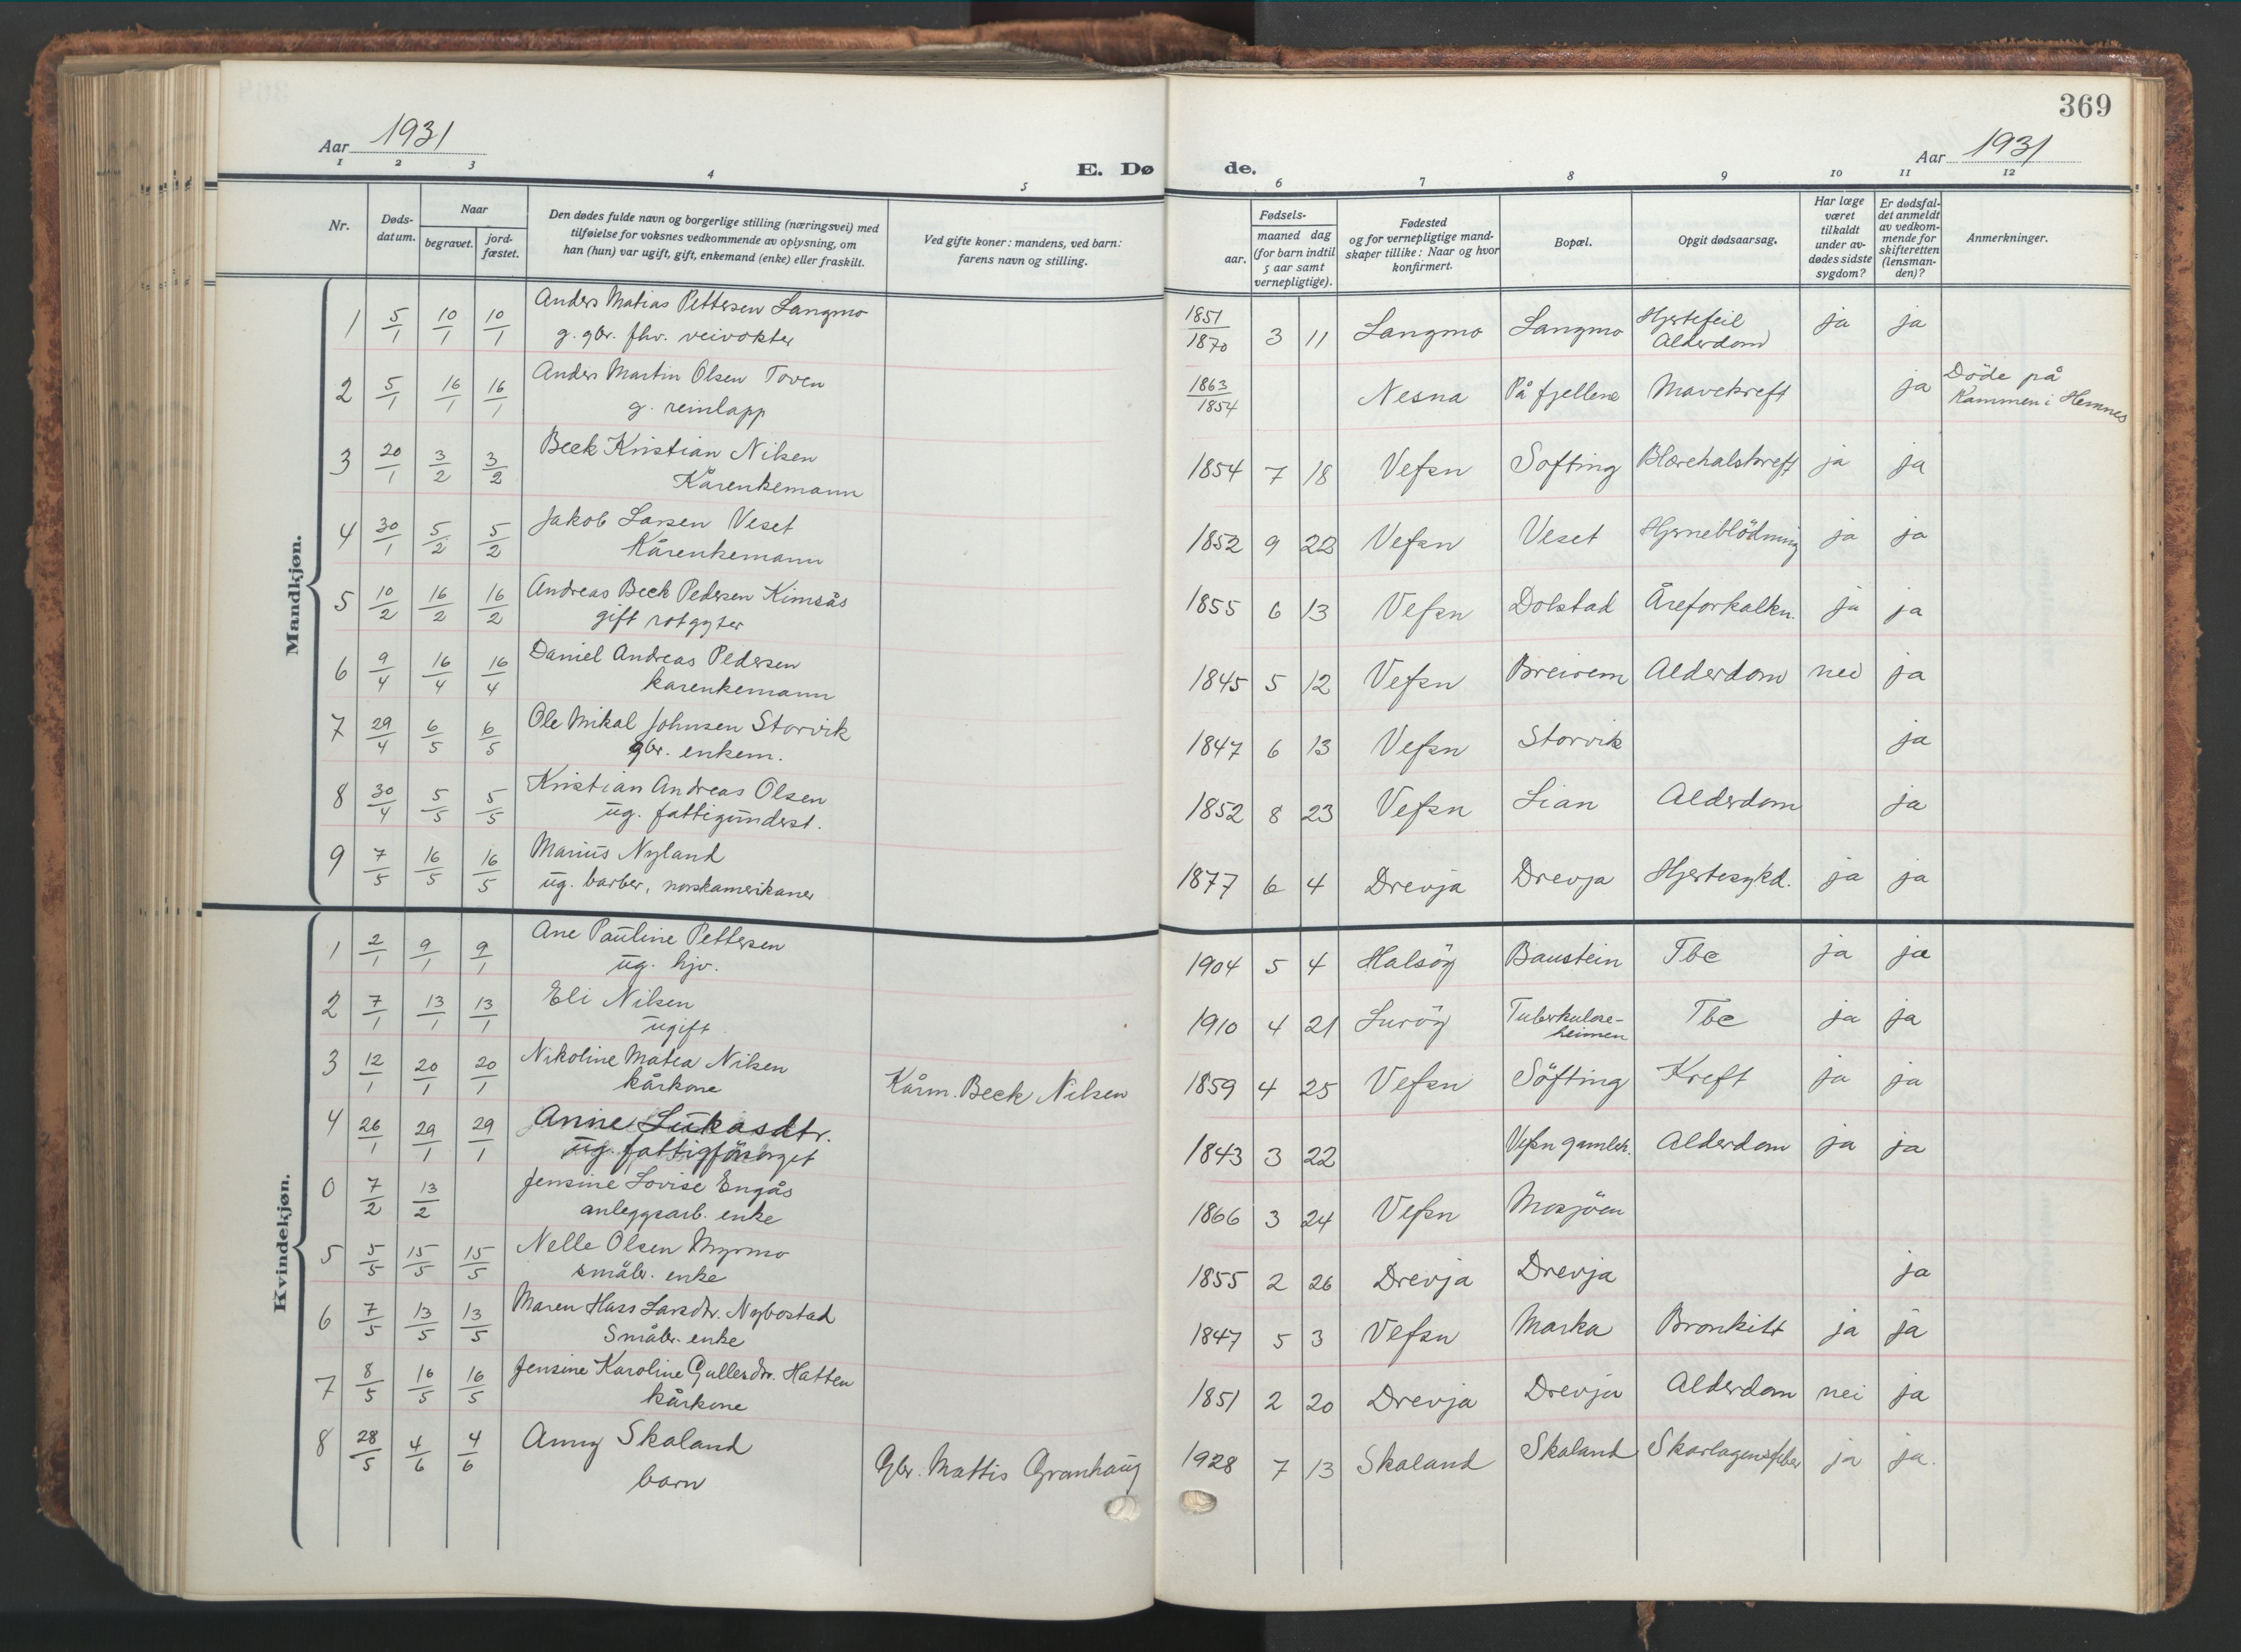 369
Aar 1931
E. Dø de.
Aar 1931
1 2 3 4 5 6 7 8 9 10 11 12
Nr.
Døds-
datum.
Naar
begravet.
jord-
fæstet.
Den dødes fulde navn og borgerlige stilling (næringsvei) med
tilføielse for voksnes vedkommende av oplysning, om
han (hun) var ugift, gift, enkemand (enke) eller fraskilt.
Ved gifte koner: mandens, ved barn:
farens navn og stilling.
Fødsels-
aar.
maaned dag
(for barn indtil
5 aar samt
vernepligtige).
Fødested
og for vernepligtige mand-
skaper tillike: Naar og hvor
konfirmert.
Bopæl.
Opgit dødsaarsag.
Har læge
været
tilkaldt
under av-
dødes sidste
sygdom?
Er dødsfal-
det anmeldt
av vedkom-
mende for
skifteretten
(lensman-
den)?
Anmerkninger.
Mandkjøn.
1 5/1 10/1 10/1 Anders Matias Pettersen Langmo 1851/1870 3 11 Langmo Langmo Hjertefeil ja ja
g. gbr. fhv. veivokter Alderdom
2 5/1 16/1 16/1 Anders Martin Olsen Toven 1863/1854 Nesna På fjellene Mavekreft ja Döde på
g. reinlapp Kammen i Hemnes
3 20/1 3/2 3/2 Beck Kristian Nilsen 1854 7 18 Vefsn Softing Blærehalskreft ja ja
Kårenkemann
4 30/1 5/2 5/2 Jakob Larsen Veset 1852 9 22 Vefsn Veset Hjerneblödning ja ja
Kårenkemann
5 10/2 16/2 16/2 Andreas Beck Pedersen Kimsås 1855 6 13 Vefsn Dolstad Åreforkalkn. ja ja
gift rotgyter
6 9/4 16/4 16/4 Daniel Andreas Pedersen 1845 5 12 Vefsn Breirem Alderdom nei ja
karenkemann
7 29/4 6/5 6/5 Ole Mikal Johnsen Storvik 1847 6 13 Vefsn Storvik ja
gbr. enkem.
8 30/4 5/5 5/5 Kristian Andreas Olsen 1852 8 23 Vefsn Lian Alderdom ja
ug. fattigunderst.
9 7/5 16/5 16/5 Marius Nyland 1877 6 4 Drevja Drevja Hjertesykd. ja ja
ug. barber, norskamerikaner
Kvindekjøn.
1 2/1 9/1 9/1 Ane Pauline Pettersen 1904 5 4 Halsöy Baustein Tbc ja ja
ug. hjv.
2 7/1 13/1 13/1 Eli Nilsen 1910 4 21 Luröy Tuberkulose- Tbc ja ja
ugift heimen
3 12/1 20/1 20/1 Nikoline Matea Nilsen Kårm. Beck Nilsen 1859 4 25 Vefsn Söfting Kreft ja ja
kårkone
4 26/1 29/1 29/1 Anne Lukasdtr. 1843 3 22 Vefsn gamleh. Alderdom ja ja
ug. fattigforsörget
0 7/2 13/2 Jensine Lovise Engås 1866 3 24 Vefsn Mosjöen
anleggsarb. enke
5 5/5 15/5 15/5 Nelle Olsen Myrmo 1855 2 26 Drevja Drevja ja
småbr. enke
6 7/5 13/5 13/5 Maren Hass Larsdtr. Nybostad 1847 5 3 Vefsn Marka Bronkitt ja ja
Småbr. enke
7 8/5 16/5 16/5 Jensine Karoline Gullesdtr. Hatten 1851 2 20 Drevja Drevja Alderdom nei ja
kårkone
8 28/5 4/6 4/6 Anny Skaland Gbr. Mattis Granhaug 1928 7 13 Skaland Skaland Skarlagensfeber ja ja.
barn